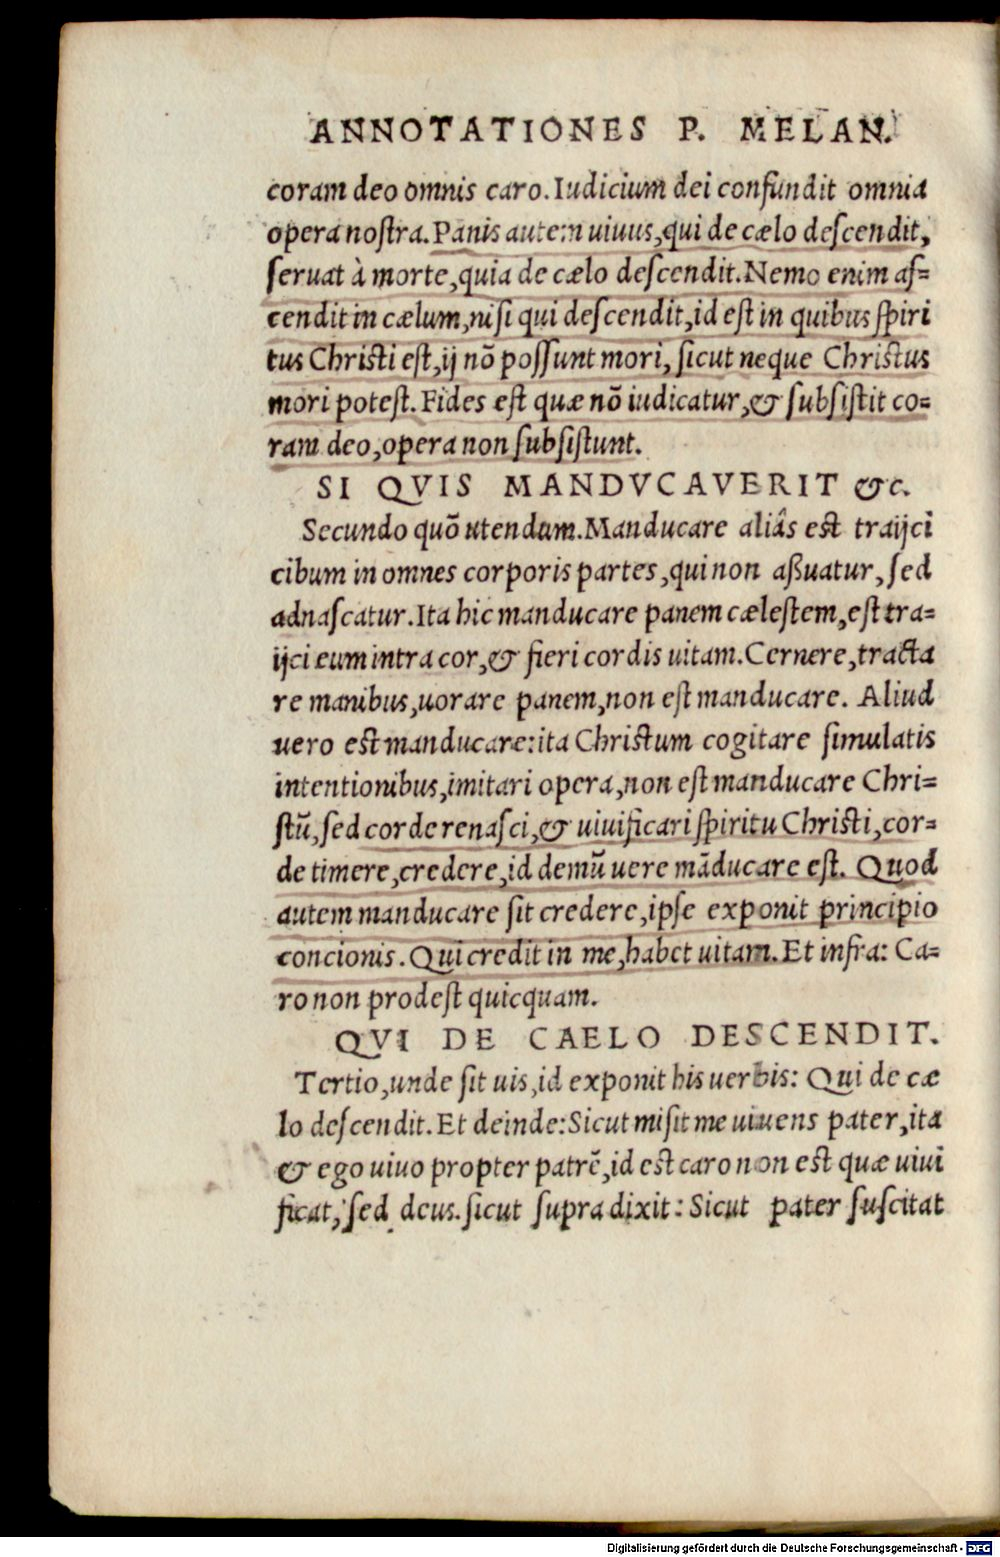 ANNOTATIONES P. MELAN.
coram deo omnis caro. Iudicium dei confundit omnia
opera nostra. Panis autem uiuus, qui de cælo descendit,
seruat à morte, quia de cælo descendit. Nemo enim as=
cendit in cælum, nisi qui descendit, id est in quibus spiri
tus Christi est, ij nõ possunt mori, sicut neque Christus
mori potest. Fides est quæ nõ iudicatur, & subsistit co=
ram deo, opera non subsistunt.
SI QVIS MANDVCAVERIT &c.
Secundo quõ utendum. Manducare aliâs est traijci
cibum in omnes corporis partes, qui non aßuatur, sed
adnascatur. Ita hic manducare panem cælestem, est tra=
ijci eum intra cor, & fieri cordis uitam. Cernere, tracta
re manibus, uorare panem, non est manducare. Aliud
uero est manducare: ita Christum cogitare simulatis
intentionibus, imitari opera, non est manducare Chri=
stũ, sed corde renasci, & uiuificari spiritu Christi, cor=
de timere, credere, id demũ uere mãducare est. Quod
autem manducare sit credere, ipse exponit principio
concionis. Qui credit in me, habet uitam. Et infra: Ca=
ro non prodest quicquam.
QVI DE CAELO DESCENDIT.
Tertio, unde sit uis, id exponit his uerbis: Qui de cæ
lo descendit. Et deinde: Sicut misit me uiuens pater, ita
& ego uiuo propter patrẽ, id est caro non est quæ uiui
ficat, sed deus. sicut supra dixit: Sicut pater suscitat
Digitalisierung gefördert durch die Deutsche Forschungsgemeinschaft - DFG